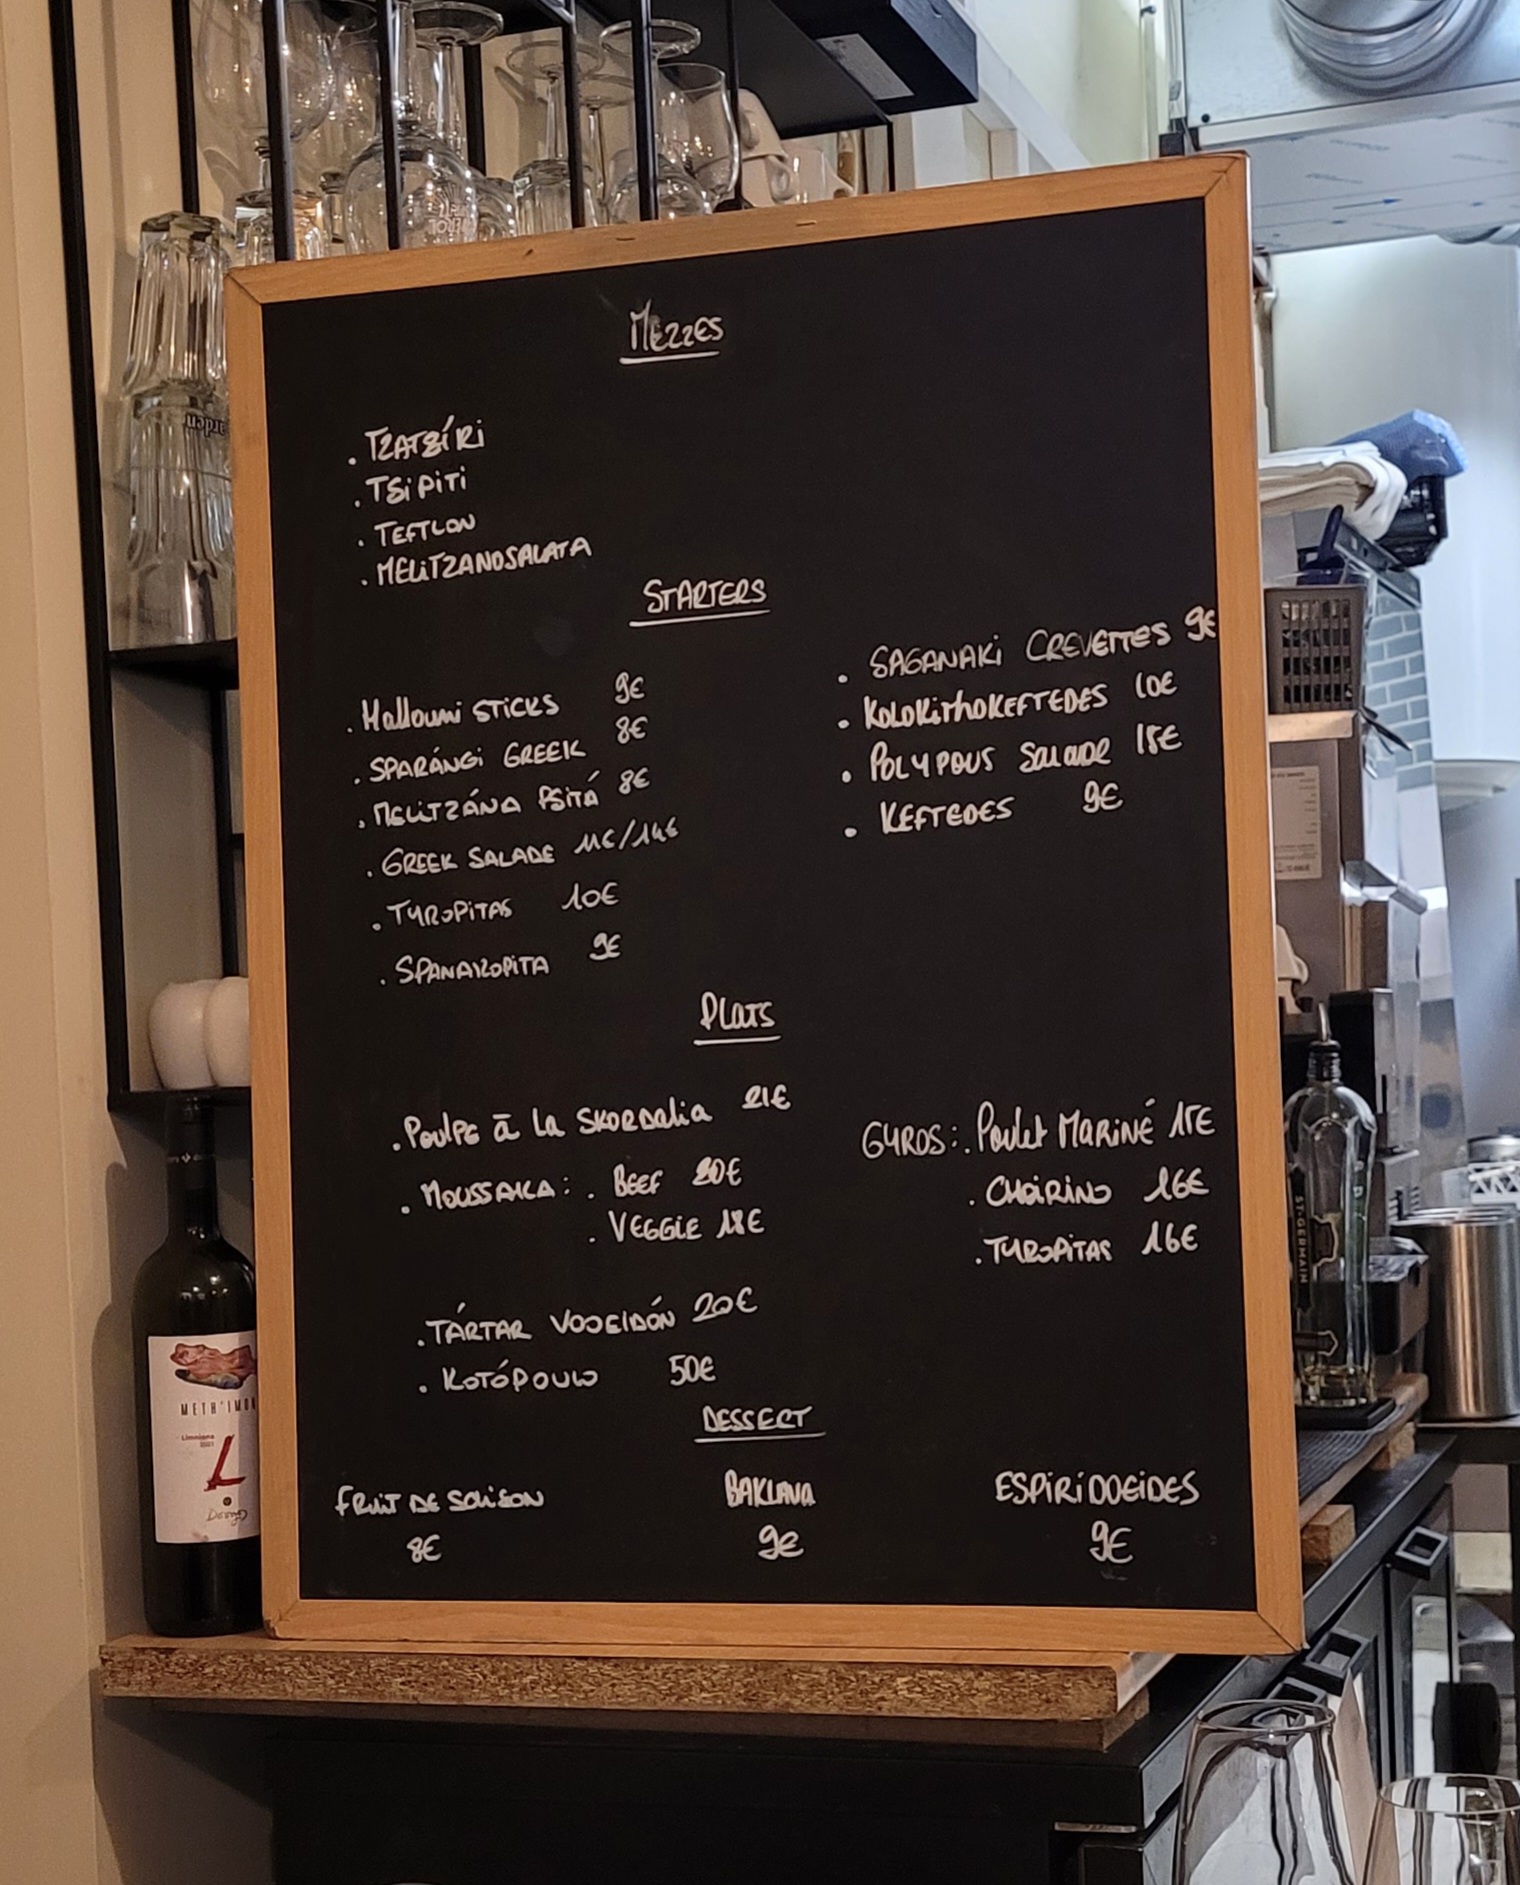 MEZZES
. TZATZÍRI
. TSIPITI
. TEFTLON
. MELITZANOSALATA
STARTERS
. Halloumi STICKS 9€
. SPARÁNGI GREEK 8€
. MELITZÁNA PSITÁ 8€
. GREEK SALADE 11€/14€
. TYROPITAS 10€
. SPANAKOPITA 9€
. SAGANAKI CREVETTES 9€
. KOLOKITHOKEFTEDES 10€
. POLYPOUS SALADE 15€
. KEFTEDES 9€
PLATS
. Poulpe à la SKORDALIA 21€
. MOUSSAKA : . BEEF 20€
. VEGGIE 18€
. TÁRTAR VOOEIDÓN 20€
. KOTÓPOULO 50€
GYROS : . Poulet MARINÉ 15€
. CHOIRINO 16€
. TYROPITAS 16€
DESSERT
FRUIT DE SAISON
8€
BAKLAVA
9€
ESPIRIDOEIDES
9€
METH'IMON
Limniona
2021
L
ST-GERMAIN